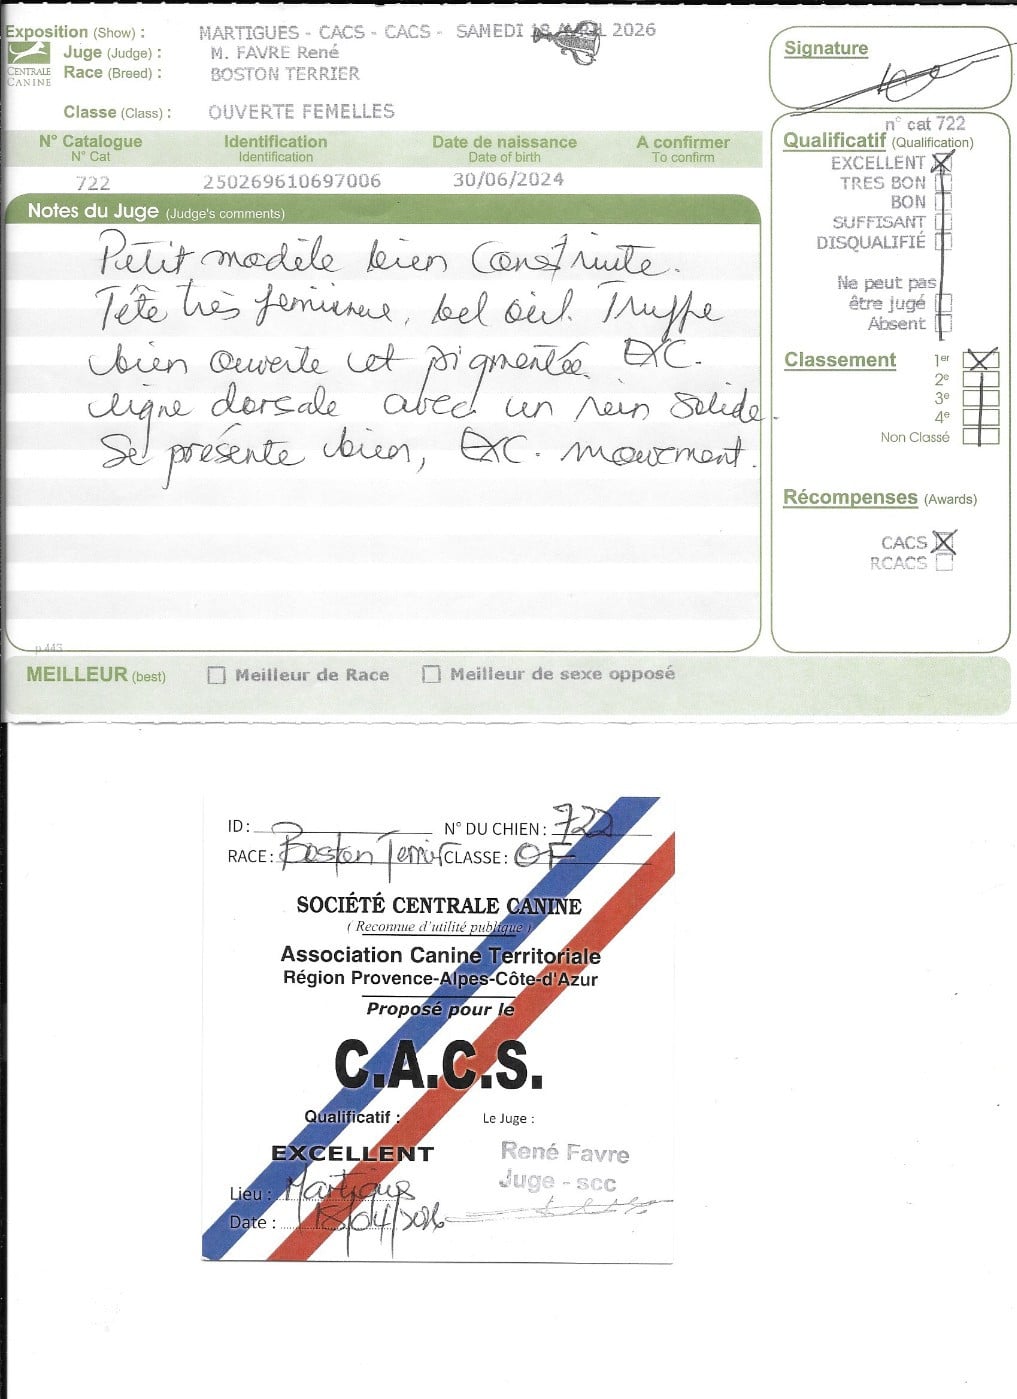 Exposition (Show) : MARTIGUES - CACS - CACS - SAMEDI 2026
Juge (Judge) : M. FAVRE René
Race (Breed) : BOSTON TERRIER
CENTRALE CANINE
Classe (Class) : OUVERTE FEMELLES
N° Catalogue Identification Date de naissance A confirmer
N° Cat Identification Date of birth To confirm
722 250269610697006 30/06/2024
Notes du Juge (Judge's comments)
Petit modèle bien Construite.
Tête très féminine, bel œil. Truffe
bien ouverte et pigmentée. EXC.
ligne dorsale avec un rein solide.
Se présente bien, EXC. mouvement.
p.443
MEILLEUR (best) Meilleur de Race Meilleur de sexe opposé
Signature
n° cat 722
Qualificatif (Qualification)
EXCELLENT
TRES BON
BON
SUFFISANT
DISQUALIFIÉ
Ne peut pas
être jugé
Absent
Classement 1er
2e
3e
4e
Non Classé
Récompenses (Awards)
CACS
RCACS
ID: N° DU CHIEN : 722
RACE: Boston Terrier CLASSE: OF
SOCIÉTÉ CENTRALE CANINE
( Reconnue d'utilité publique )
Association Canine Territoriale
Région Provence-Alpes-Côte-d'Azur
Proposé pour le
C.A.C.S.
Qualificatif : Le Juge :
EXCELLENT René Favre
Juge - scc
Lieu : Martigues
Date : 18/04/2026